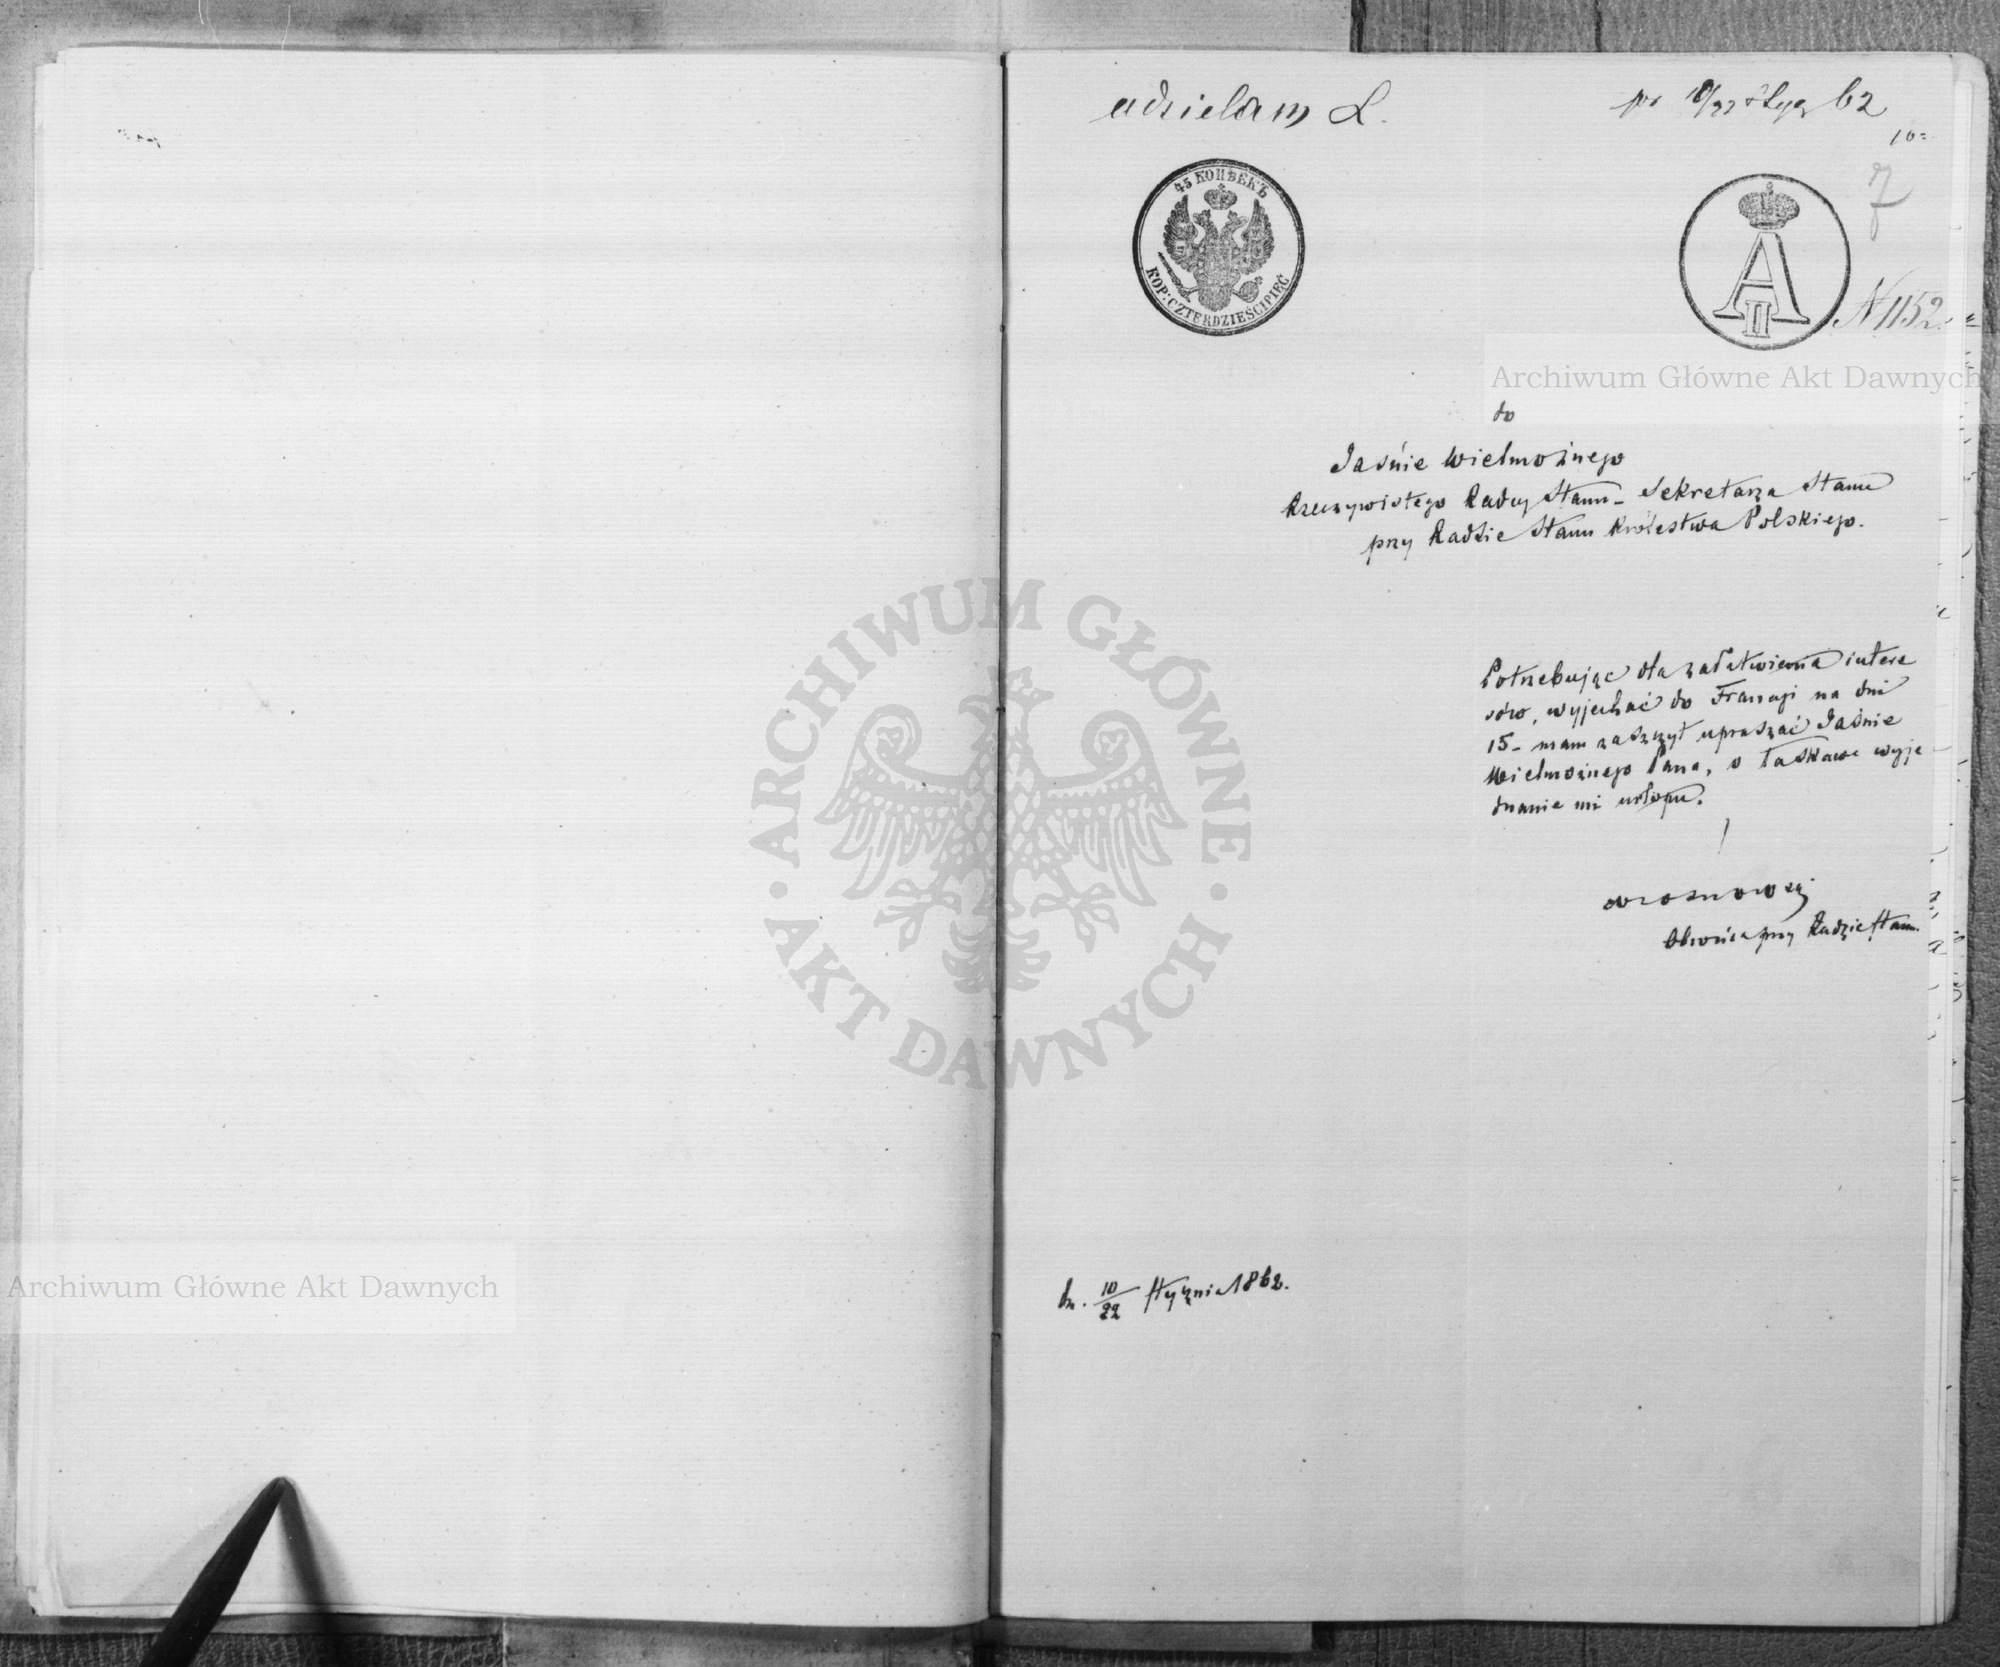 udzielam L.
pr 10/22 Stycz 62
10=
7
45 КОПѢЕКЪ
KOP: CZTERDZIEŚCI PIĘĆ
A
II
N 1152.
Archiwum Główne Akt Dawnych
do
Jaśnie Wielmożnego
Rzeczywistego Radcy Stanu - Sekretarza Stanu
przy Radzie Stanu Królestwa Polskiego.
Potrzebując dla załatwienia intere
sów, wyjechać do Francyi na dni
15 - mam zaszczyt upraszać Jaśnie
Wielmożnego Pana, o łaskawe wyje
dnanie mi urlopu.
Obrońca przy Radzie Stanu.
dn. 10/22 Stycznia 1862.
ARCHIWUM GŁÓWNE
AKT DAWNYCH
Archiwum Główne Akt Dawnych